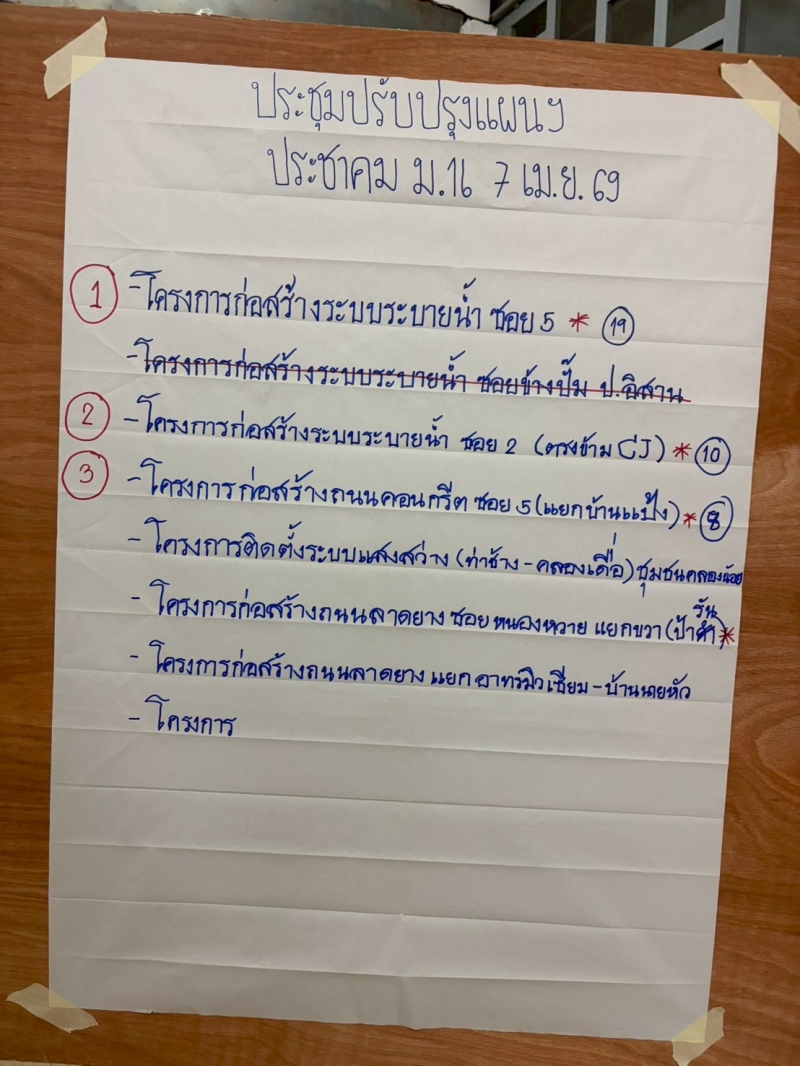 ประชุมปรับปรุงแผนฯ
ประชาคม ม.16 7 เม.ย. 69
① -โครงการก่อสร้างระบบระบายน้ำ ซอย 5 * ⑲
-โครงการก่อสร้างระบบระบายน้ำ ซอยข้างปั๊ม ป.อิสาน
② -โครงการก่อสร้างระบบระบายน้ำ ซอย 2 (ตรงข้าม CJ) * ⑩
③ -โครงการก่อสร้างถนนคอนกรีต ซอย 5 (แยกบ้านแป้ง) * ⑧
- โครงการติดตั้งระบบแสงสว่าง (ท่าช้าง - คลองเดื่อ) ชุมชนคลองน้อย
- โครงการก่อสร้างถนนลาดยาง ซอยหนองหวาย แยกขวา (ป้ารัน) *
- โครงการก่อสร้างถนนลาดยาง แยก เซียม - บ้านนายหัว
- โครงการ